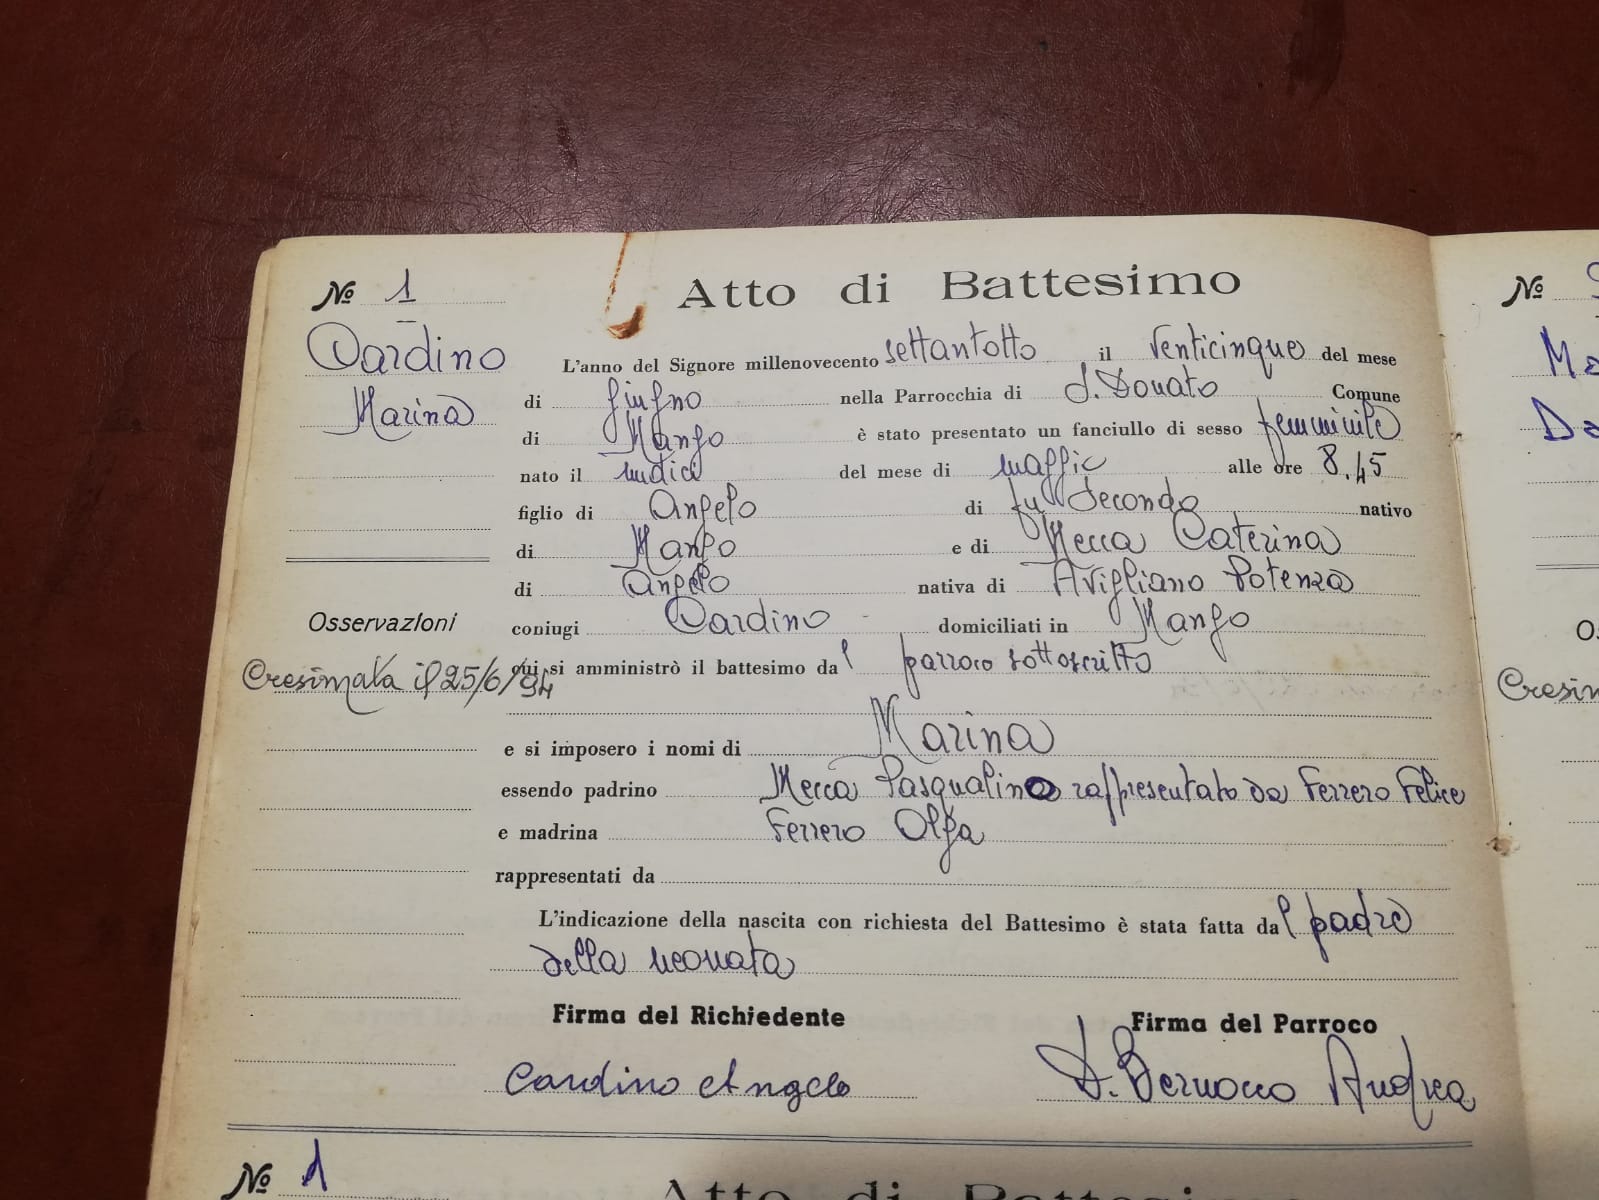 № 1
Atto di Battesimo
Cardino
Marina
L'anno del Signore millenovecento settantotto il venticinque del mese
di giugno nella Parrocchia di S. Donato Comune
di Mango è stato presentato un fanciullo di sesso femminile
nato il undici del mese di maggio alle ore 8.45
figlio di Angelo di fu Secondo nativo
di Mango e di Mecca Caterina
di Angelo nativa di Avigliano Potenza
coniugi Cardino domiciliati in Mango
qui si amministrò il battesimo dal parroco sottoscritto
Osservazioni
Cresimata il 25/6/94
e si imposero i nomi di Marina
essendo padrino Mecca Pasqualino rappresentato da Ferrero Felice
e madrina Ferrero Olga
rappresentati da
L'indicazione della nascita con richiesta del Battesimo è stata fatta dal padre
della neonata
Firma del Richiedente Firma del Parroco
Cardino Angelo D. Bernocco Andrea
№ 1
Atto di Battesimo
№
Ma
Da
Os
Cresim